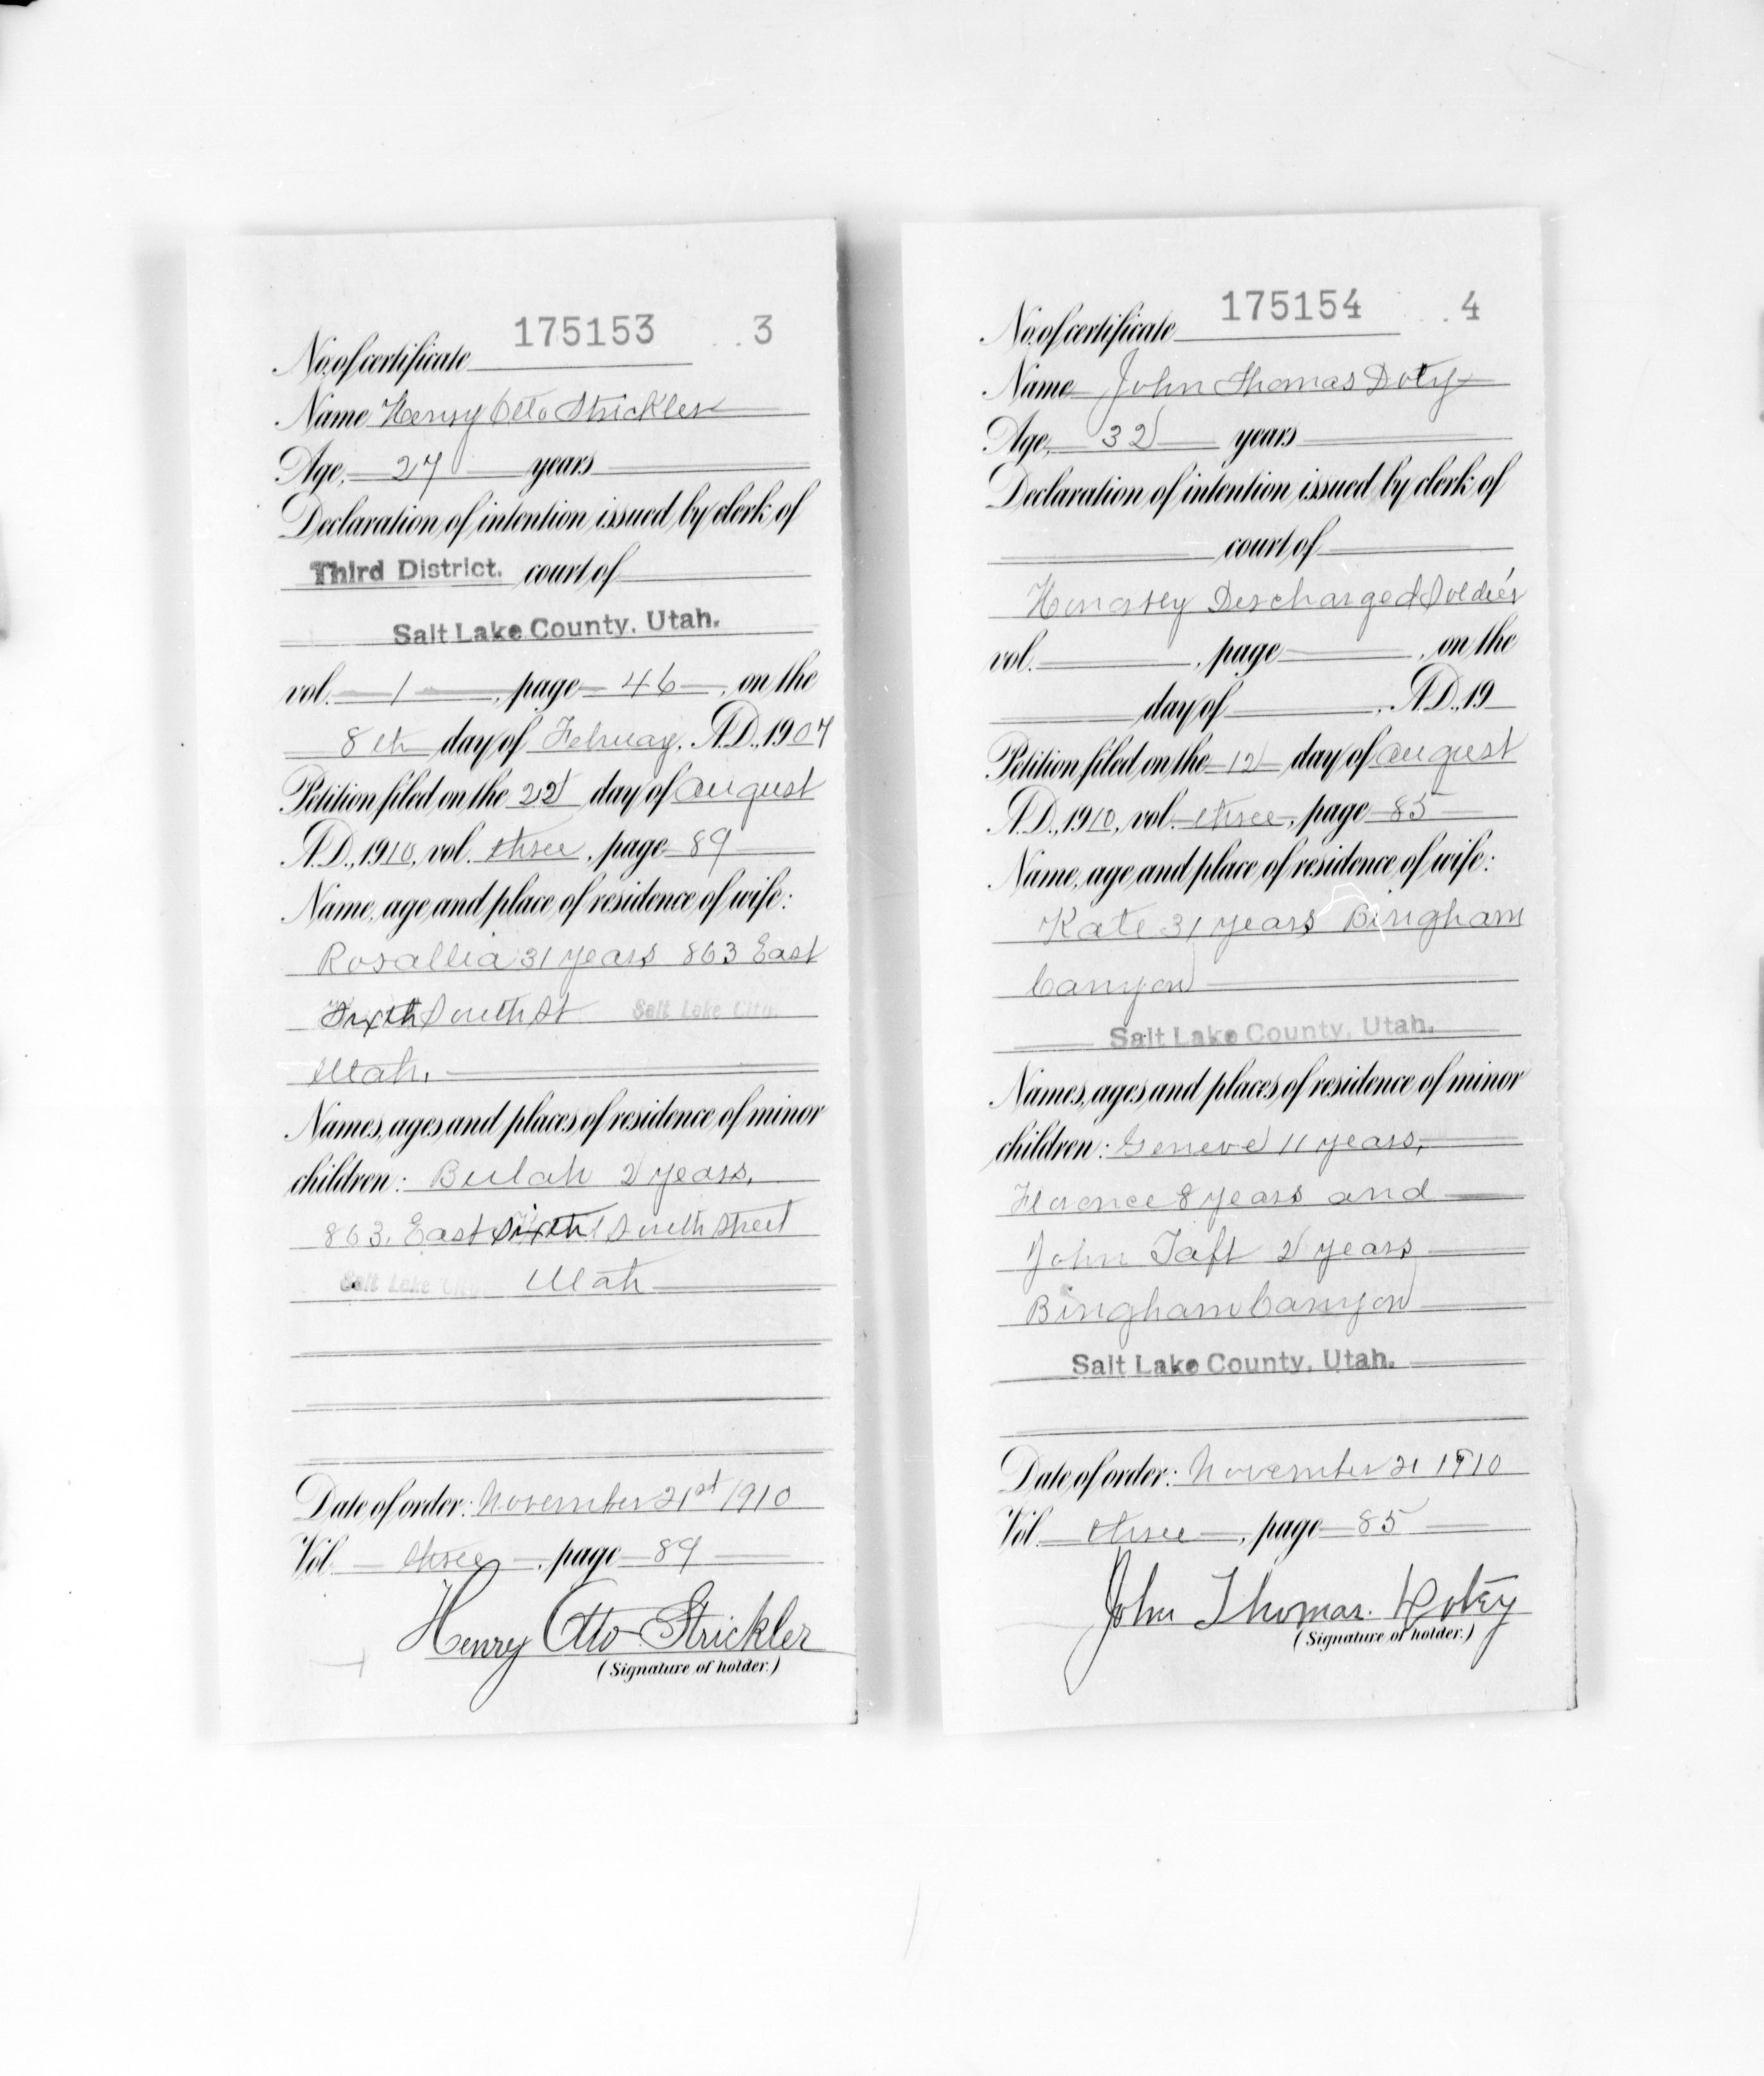 175153 3
No. of certificate
Name Henry Otto Strickler
Age, 27 years
Declaration of intention issued by clerk of
Third District. court of
Salt Lake County, Utah.
vol. 1, page 46, on the
8th day of February, A.D., 1907
Petition filed on the 22 day of August
A.D., 1910, vol. three, page 89
Name, age and place of residence of wife:
Rosallia 31 years 863 East
Sixth South St Salt Lake City,
Utah.
Names, ages and places of residence of minor
children: Beulah 2 years.
863. East Sixth South Street
Salt Lake City Utah
Date of order: November 21st 1910
Vol. three, page 89
Henry Otto Strickler
(Signature of holder.)
175154 4
No. of certificate
Name John Thomas Doty
Age, 32 years
Declaration of intention issued by clerk of
court of
Discharged Soldier
vol. , page , on the
day of , A.D., 19
Petition filed on the 12 day of August
A.D., 1910, vol. three, page 85
Name, age and place of residence of wife:
Kate 31 years Bingham
Canyon
Salt Lake County, Utah.
Names, ages and places of residence of minor
children: Geneve 11 years,
Florence 8 years and
John Taft 2 years
Bingham Canyon
Salt Lake County, Utah.
Date of order: November 21 1910
Vol. three, page 85
John Thomas. Dotey
(Signature of holder.)